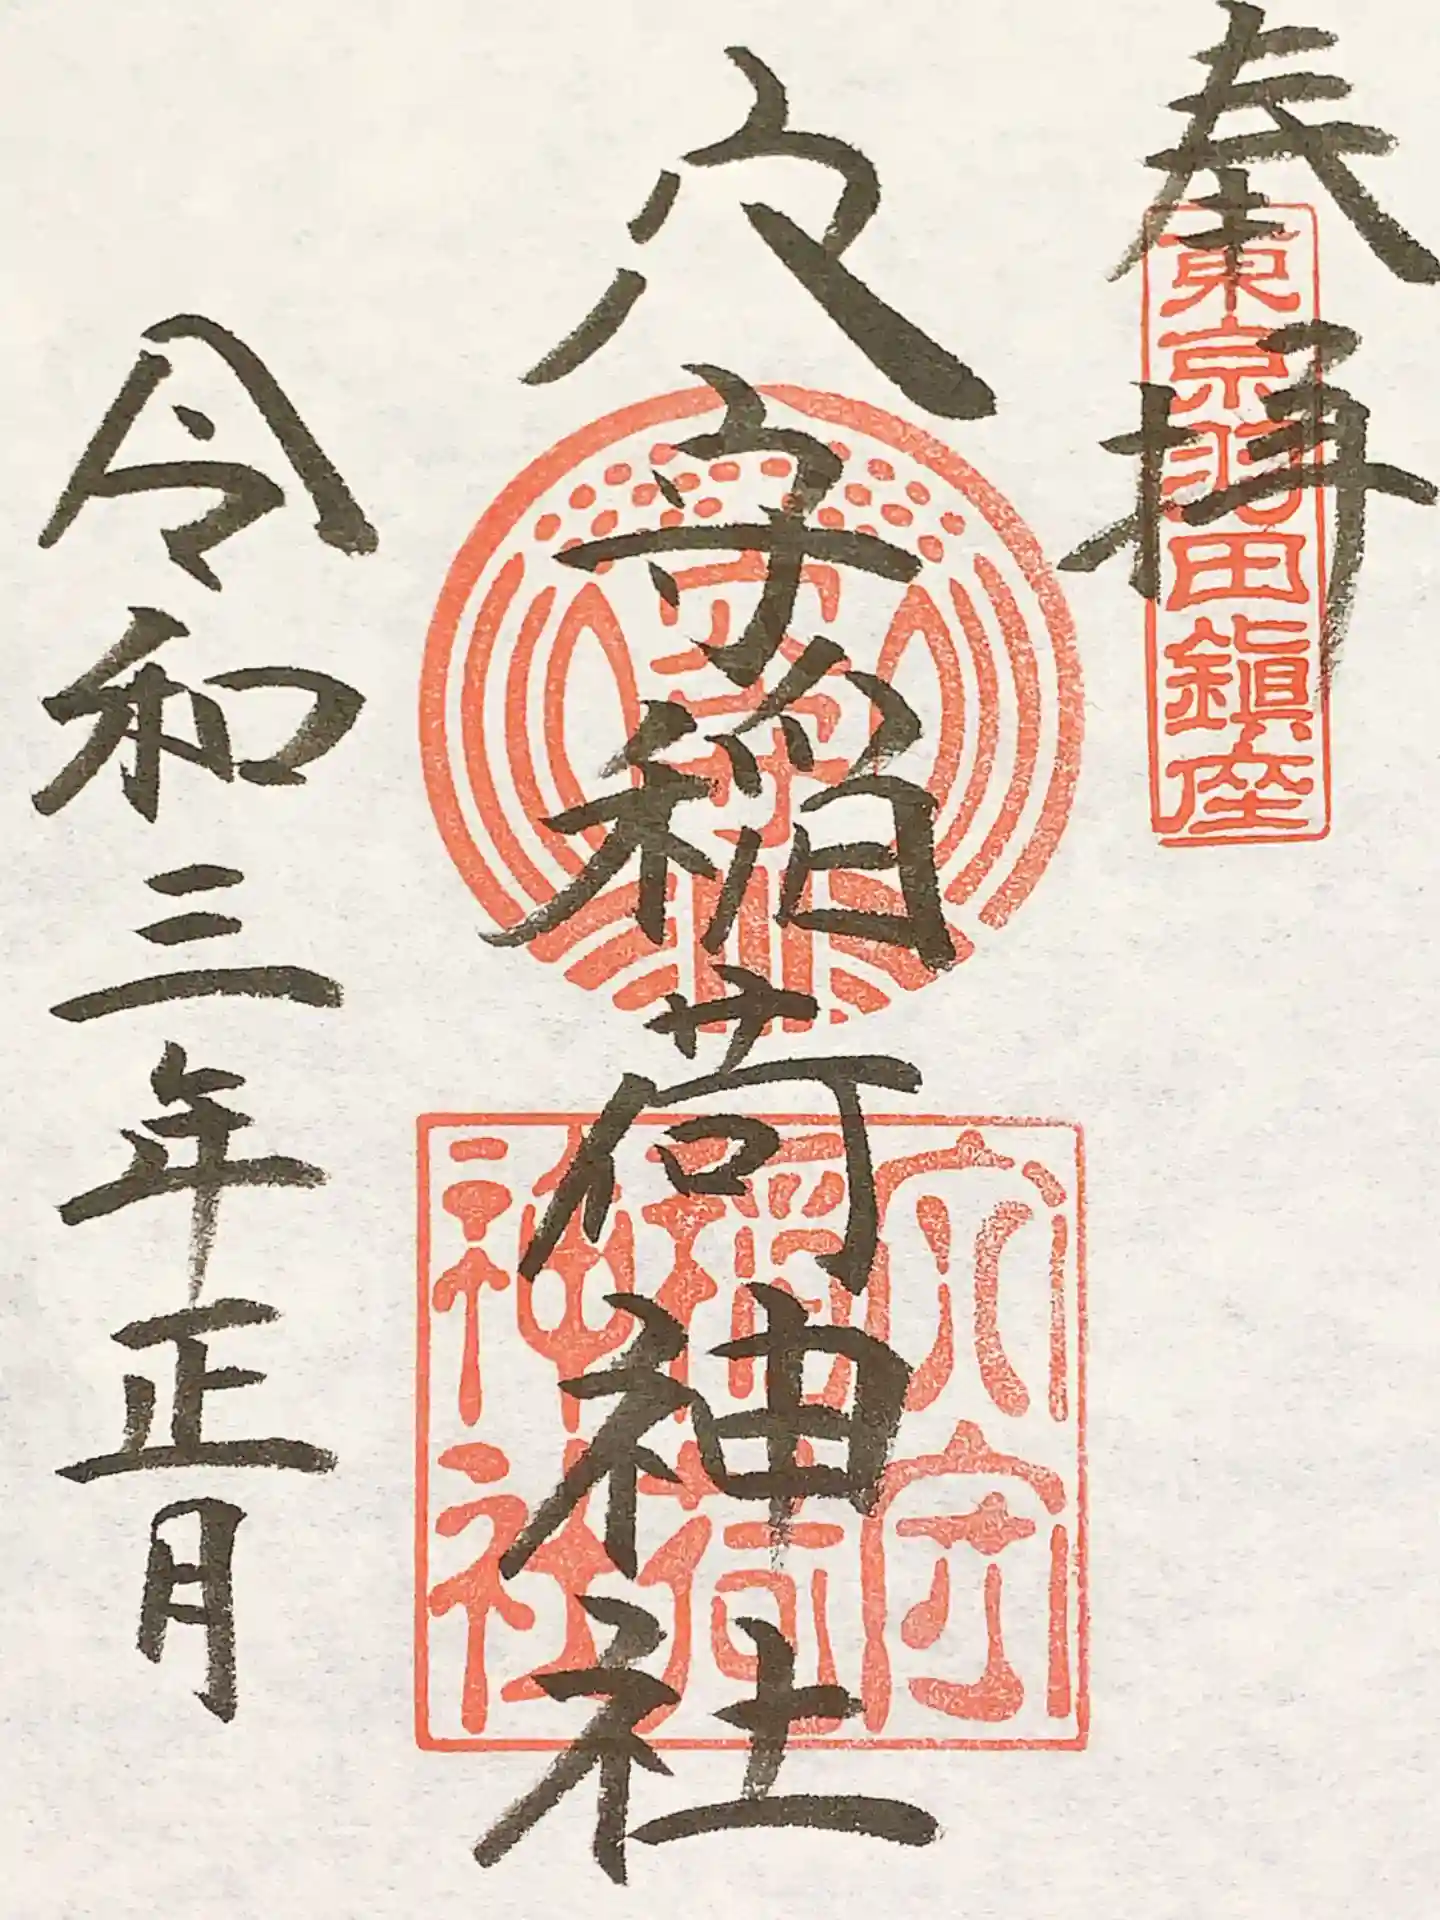 奉拝
東京羽田鎮座
穴守稲荷神社
穴守
穴守
稲荷
神社
令和三年正月